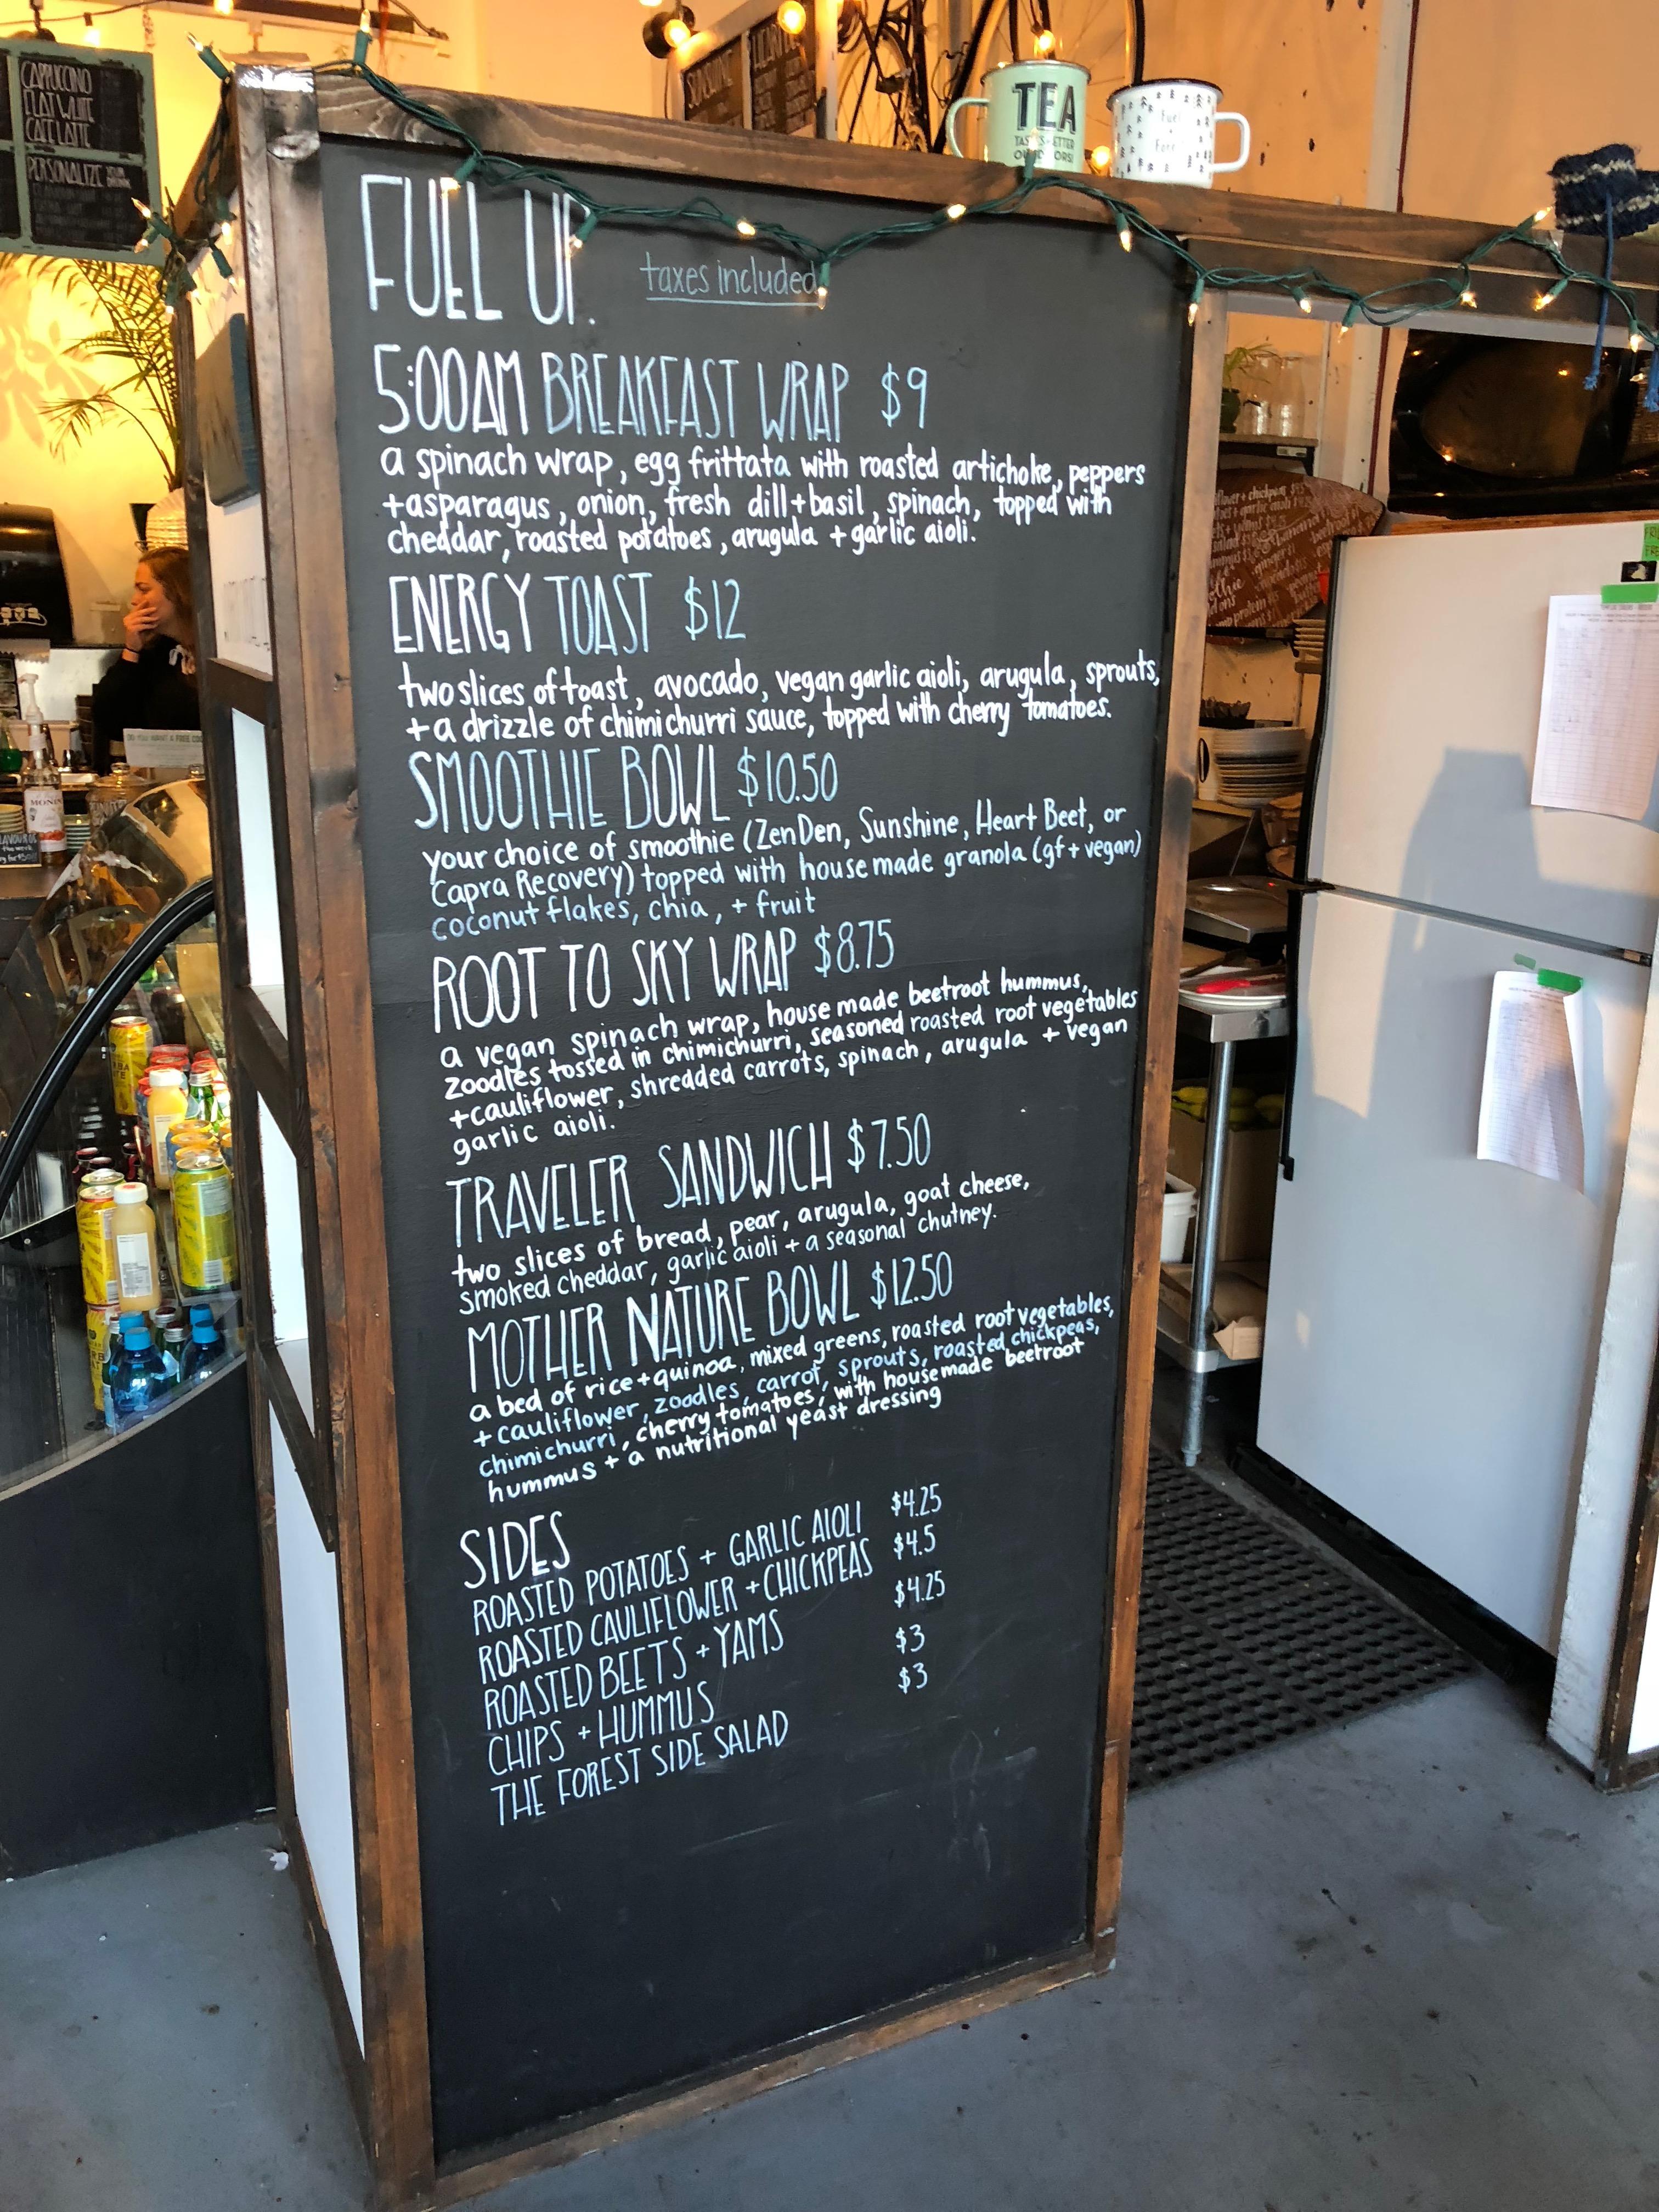 CAPPUCCINO
FLAT WHITE
CAFE LATTE
PERSONALIZE YOUR DRINK
TEA
TASTES BETTER
OUTDOORS!
Fuel
+
Fare
FUEL UP.
taxes included
5:00AM BREAKFAST WRAP $9
a spinach wrap, egg frittata with roasted artichoke, peppers
+asparagus, onion, fresh dill+basil, spinach, topped with
cheddar, roasted potatoes, arugula + garlic aioli.
ENERGY TOAST $12
two slices of toast, avocado, vegan garlic aioli, arugula, sprouts,
+ a drizzle of chimichurri sauce, topped with cherry tomatoes.
SMOOTHIE BOWL $10.50
your choice of smoothie (ZenDen, Sunshine, Heart Beet, or
Capra Recovery) topped with house made granola (gf + vegan)
coconut flakes, chia, + fruit
ROOT TO SKY WRAP $8.75
a vegan spinach wrap, house made beetroot hummus,
zoodles tossed in chimichurri, seasoned roasted root vegetables
+cauliflower, shredded carrots, spinach, arugula + vegan
garlic aioli.
TRAVELER SANDWICH $7.50
two slices of bread, pear, arugula, goat cheese,
smoked cheddar, garlic aioli + a seasonal chutney.
MOTHER NATURE BOWL $12.50
a bed of rice+quinoa, mixed greens, roasted root vegetables,
+ cauliflower, zoodles, carrot, sprouts, roasted chickpeas,
chimichurri, cherry tomatoes, with housemade beetroot
hummus + a nutritional yeast dressing
SIDES
ROASTED POTATOES + GARLIC AIOLI $4.25
ROASTED CAULIFLOWER + CHICKPEAS $4.5
ROASTED BEETS + YAMS $4.25
CHIPS + HUMMUS $3
THE FOREST SIDE SALAD $3
MONIN